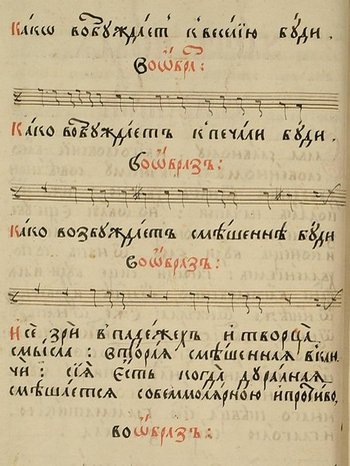 Какѡ возбꙋждаетъ к̾веселїю бꙋди.
Воѡбра:
Како возбꙋждаетъ к̾печали бꙋди.
Воѡбразъ:
Како возбꙋждаетъ смѣшеннѣ бꙋди
Воѡбразъ:
Исе, зри в̾падежехъ и творца
смысла: вторая смѣшенная
чи: сїя есть когда дꙋралная
смѣшается собеммолярною ипротиво,
воѡбразъ: